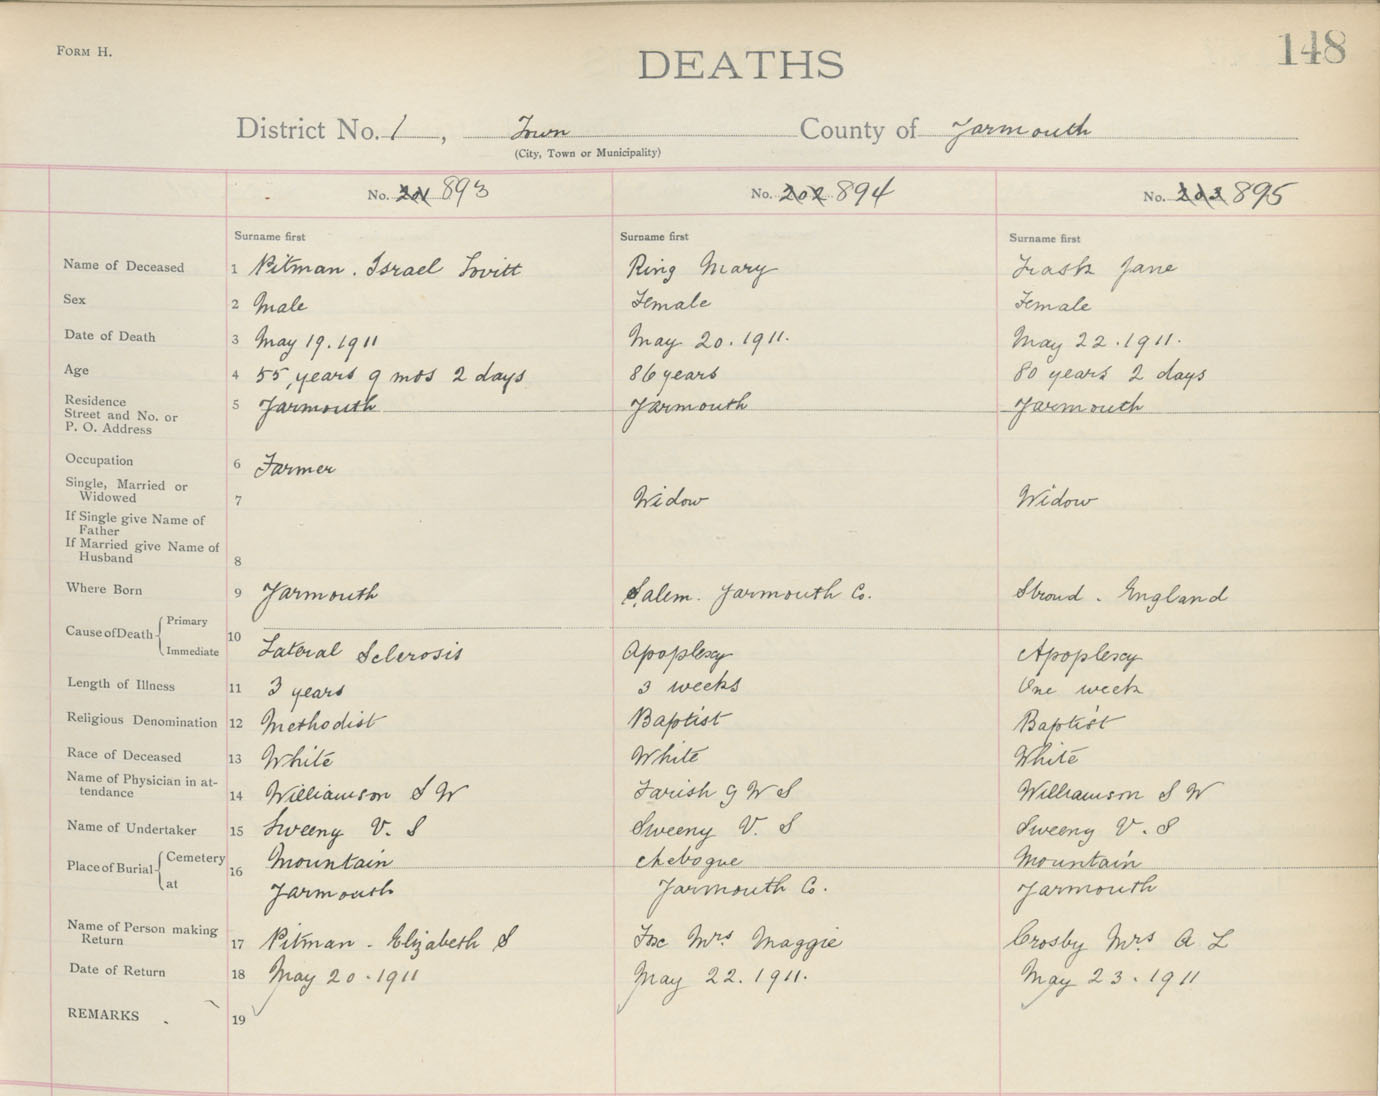 FORM H.
DEATHS
148
District No. 1, Town County of Yarmouth
(City, Town or Municipality)
No. 201 893 No. 202 894 No. 203 895
Surname first Surname first Surname first
Name of Deceased 1 Pitman. Israel Lovitt Ring Mary Trask Jane
Sex 2 Male Female Female
Date of Death 3 May 19. 1911 May 20. 1911. May 22. 1911.
Age 4 55 years 9 mos 2 days 86 years 80 years 2 days
Residence
Street and No. or 5 Yarmouth Yarmouth Yarmouth
P. O. Address
Occupation 6 Farmer
Single, Married or
Widowed 7 Widow Widow
If Single give Name of
Father
If Married give Name of
Husband 8
Where Born 9 Yarmouth Salem. Yarmouth Co. Stroud. England
Cause of Death Primary
Immediate 10 Lateral Sclerosis Apoplexy Apoplexy
Length of Illness 11 3 years 3 weeks One week
Religious Denomination 12 Methodist Baptist Baptist
Race of Deceased 13 White White White
Name of Physician in at-
tendance 14 Williamson S W Farish G W S Williamson S W
Name of Undertaker 15 Sweeny V. S Sweeny V. S Sweeny V. S
Place of Burial Cemetery 16 Mountain Chebogue Mountain
at Yarmouth Yarmouth Co. Yarmouth
Name of Person making
Return 17 Pitman - Elizabeth S Fox Mrs Maggie Crosby Mrs A L
Date of Return 18 May 20. 1911 May 22. 1911. May 23. 1911
REMARKS 19